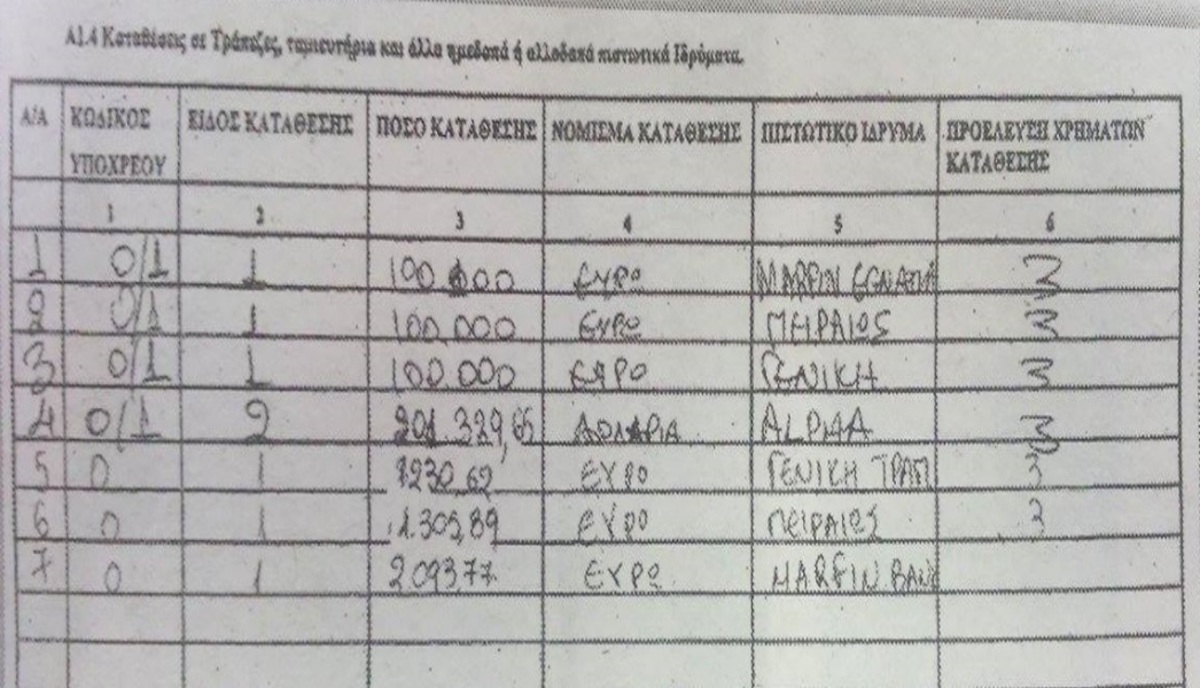 Α1.4 Καταθέσεις σε Τράπεζες, ταμιευτήρια και άλλα ημεδαπά ή αλλοδαπά πιστωτικά Ιδρύματα.
Α/Α ΚΩΔΙΚΟΣ ΥΠΟΧΡΕΟΥ ΕΙΔΟΣ ΚΑΤΑΘΕΣΗΣ ΠΟΣΟ ΚΑΤΑΘΕΣΗΣ ΝΟΜΙΣΜΑ ΚΑΤΑΘΕΣΗΣ ΠΙΣΤΩΤΙΚΟ ΙΔΡΥΜΑ ΠΡΟΕΛΕΥΣΗ ΧΡΗΜΑΤΩΝ ΚΑΤΑΘΕΣΗΣ
1 2 3 4 5 6
1 0/1 1 100.000 ΕΥΡΩ MARFIN EGNATIA 3
2 0/1 1 100.000 ΕΥΡΩ ΠΕΙΡΑΙΩΣ 3
3 0/1 1 100.000 ΕΥΡΟ ΓΕΝΙΚΗ 3
4 0/1 2 201.329,65 ΔΟΛΑΡΙΑ ALPHA 3
5 0 1 1230,62 ΕΥΡΟ ΓΕΝΙΚΗ ΤΡΑΠ 3
6 0 1 1.305,89 ΕΥΡΟ ΠΕΙΡΑΙΩΣ 3
7 0 1 2.093,77 ΕΥΡΩ MARFIN BANK